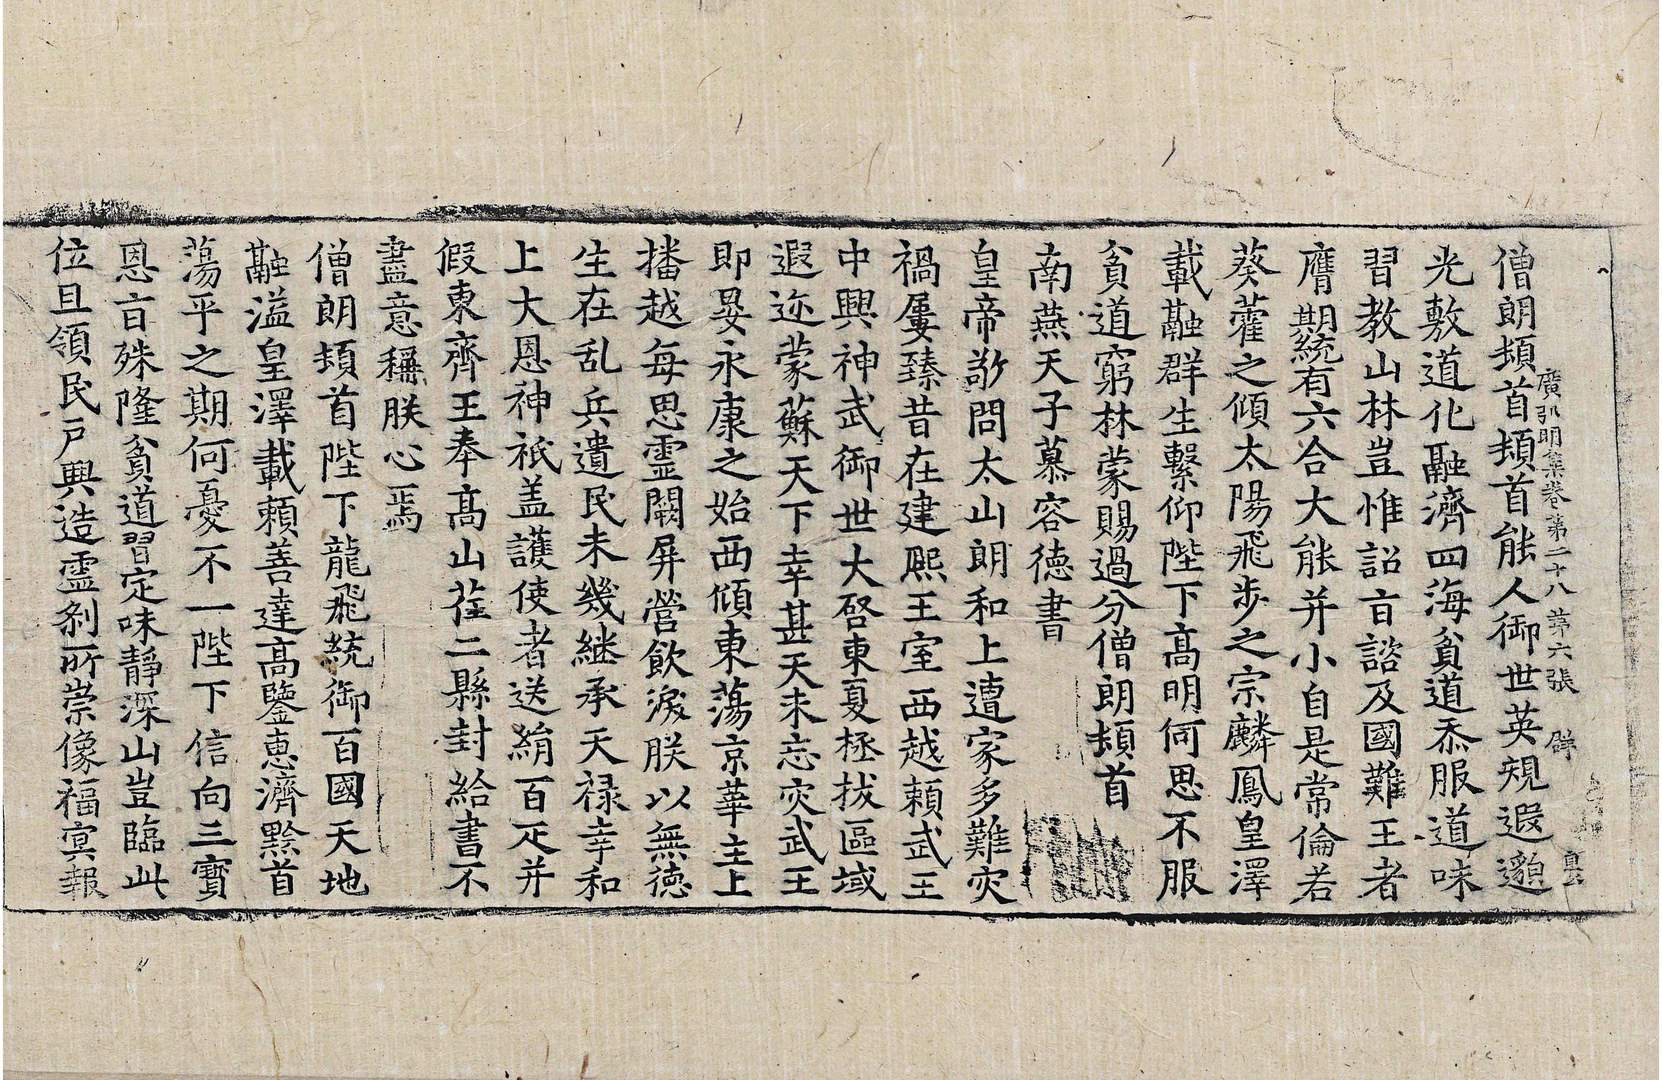 廣弘明集卷第二十八 第六張
僧朗頓首頓首能人御世英規遐邈
光敷道化融濟四海貧道忝服道味
習教山林豈惟詔旨諮及國難王者
膺期統有六合大能并小自是常倫若
葵藿之傾太陽飛步之宗麟鳳皇澤
載融群生繫仰陛下高明何思不服
貧道窮林蒙賜過分僧朗頓首
南燕天子慕容德書
皇帝敬問太山朗和上遭家多難灾
禍屢臻昔在建熙王室西越賴武王
中興神武御世大啓東夏拯拔區域
遐迩蒙蘇天下幸甚天未忘灾武王
即晏永康之始西傾東蕩京華主上
播越每思靈闕屏營飲淚朕以無德
生在乱兵遺民未幾继承天禄幸和
上大恩神祇盖護使者送絹百疋并
假東齊王奉高山茌二縣封給書不
盡意稱朕心焉
僧朗頓首陛下龍飛統御百國天地
融溢皇澤載賴善達高鑒惠濟黔首
蕩平之期何憂不一陛下信向三寶
恩旨殊隆貧道習定味靜深山豈臨此
位且領民户興造靈剎所崇像福冥報